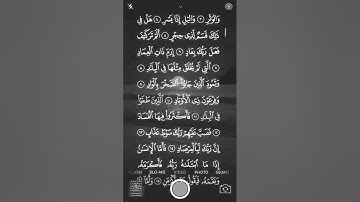 وَالْوَتْرِ ٣ وَاللَّيْلِ إِذَا يَسْرِ ٤ هَلْ فِي
ذَٰلِكَ قَسَمٌ لِّذِي حِجْرٍ ٥ أَلَمْ تَرَ كَيْفَ
فَعَلَ رَبُّكَ بِعَادٍ ٦ إِرَمَ ذَاتِ الْعِمَادِ
٧ الَّتِي لَمْ يُخْلَقْ مِثْلُهَا فِي الْبِلَادِ
٨ وَثَمُودَ الَّذِينَ جَابُوا الصَّخْرَ بِالْوَادِ ٩
وَفِرْعَوْنَ ذِي الْأَوْتَادِ ١٠ الَّذِينَ طَغَوْا
فِي الْبِلَادِ ١١ فَأَكْثَرُوا فِيهَا الْفَسَادَ
١٢ فَصَبَّ عَلَيْهِمْ رَبُّكَ سَوْطَ عَذَابٍ ١٣
إِنَّ رَبَّكَ لَبِالْمِرْصَادِ ١٤ فَأَمَّا الْإِنسَانُ
إِذَا مَا ابْتَلَاهُ رَبُّهُ فَأَكْرَمَهُ
SLO-MO VIDEO PHOTO SQUARE
وَنَعَّمَهُ فَيَقُولُ رَبِّي أَكْرَمَنِ ١٥ وَأَمَّا